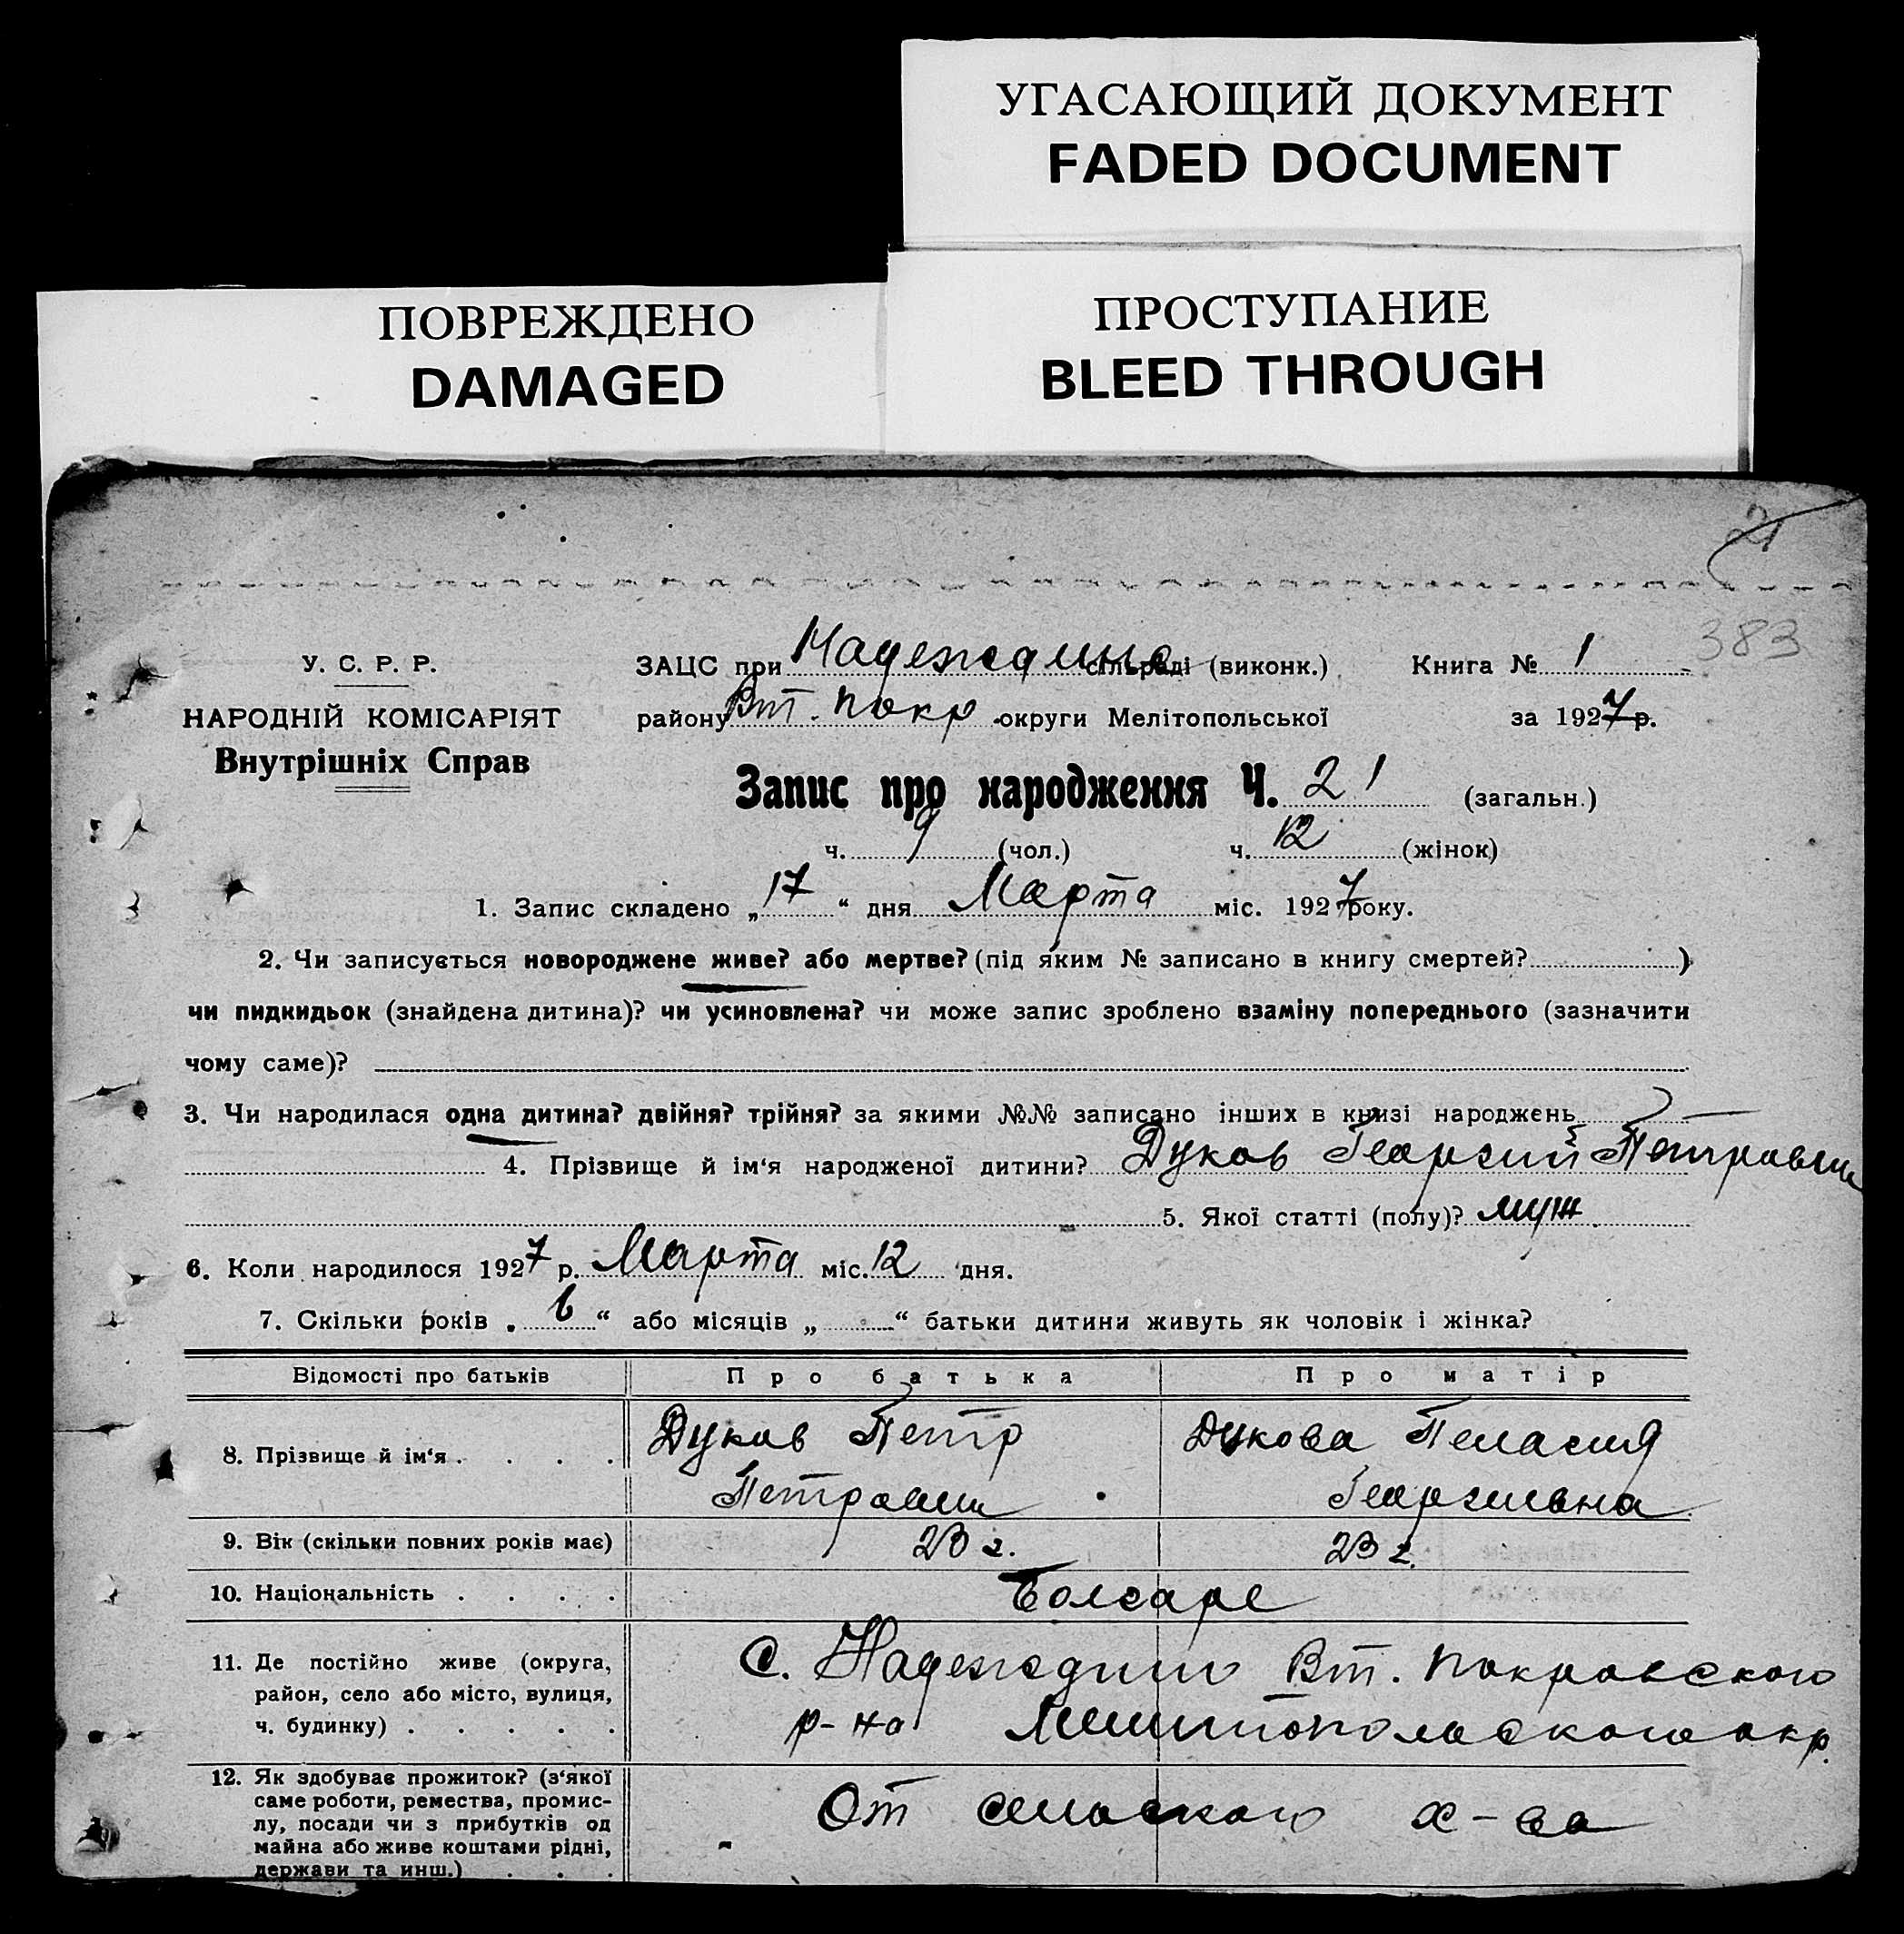 УГАСАЮЩИЙ ДОКУМЕНТ
FADED DOCUMENT
ПОВРЕЖДЕНО
DAMAGED
ПРОСТУПАНИЕ
BLEED THROUGH
21
383
У. С. Р. Р.
НАРОДНІЙ КОМІСАРІЯТ
Внутрішніх Справ
ЗАЦС при Надеждино сільраді (виконк.) Книга № 1
району Вт. Покр. округи Мелітопольської за 1927 р.
Запис про народження Ч. 21 (загальн.)
ч. 9 (чол.) ч. 12 (жінок)
1. Запис складено „17“ дня Марта міс. 1927 року.
2. Чи записується новороджене живе? або мертве? (під яким № записано в книгу смертей? )
чи пидкидьок (знайдена дитина)? чи усиновлена? чи може запис зроблено взаміну попереднього (зазначити
чому саме)?
3. Чи народилася одна дитина? двійня? трійня? за якими №№ записано інших в книзі народжень
4. Прізвище й ім‘я народженої дитини? Дуков Георгий Петрович
5. Якої статті (полу)? муж.
6. Коли народилося 1927 р. Марта міс. 12 дня.
7. Скільки років „6“ або місяців „ “ батьки дитини живуть як чоловік і жінка?
Відомості про батьків Про батька Про матір
8. Прізвище й ім‘я . . . . Дуков Петр Дукова Пелагия
Петрович Георгиевна
9. Вік (скільки повних років має) 23 г. 23 г.
10. Національність . . . . Болгаре
11. Де постійно живе (округа,
район, село або місто, вулиця,
ч. будинку) . . . . .
С. Надеждино Вт. Покровского
р-на Мелитопольского окр.
12. Як здобуває прожиток? (з‘якої
саме роботи, ремества, промис-
лу, посади чи з прибутків од
майна або живе коштами рідні,
держави та инш.) . . .
От сельского х-ва